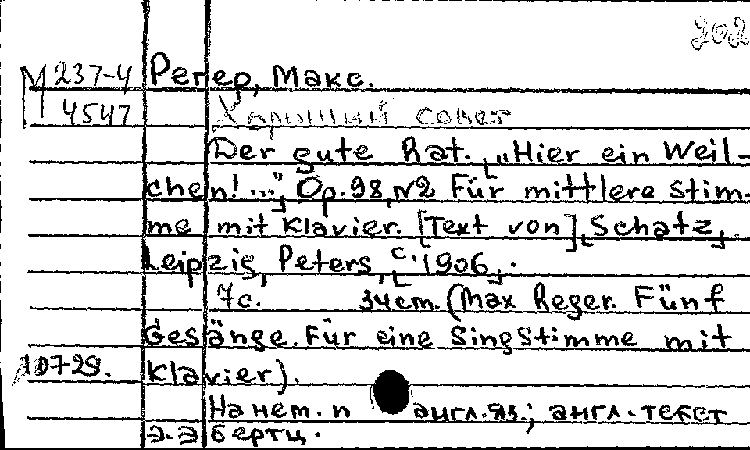 202
М 237-4 Регер, Макс.
4547 Хороший совет
Der gute Rat. [„Hier ein Weil-
chen!...“], Op. 98, N2 Für mittlere Stim-
me mit Klavier. [Text von] [Schatz].
Leipzig, Peters, [c. 1906].
7с. 34cm. (Max Reger. Fünf
Gesänge. Für eine Singstimme mit
Klavier).
На нем. и англ. яз.; англ. текст
Э. Э бертц.